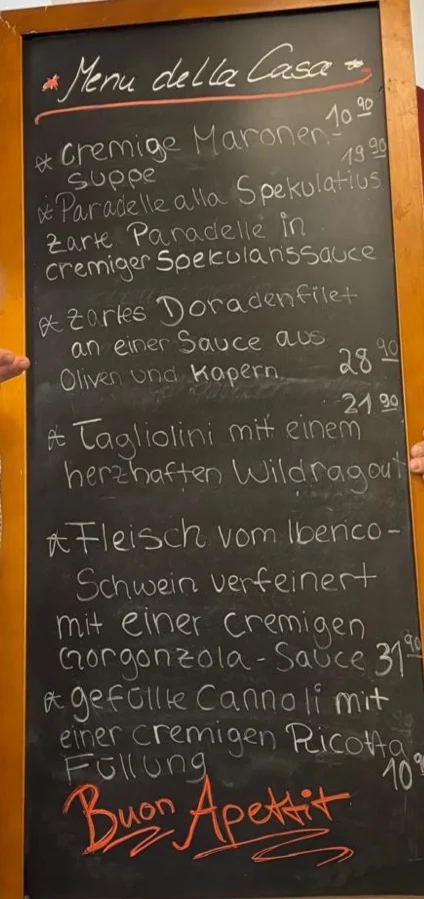 * Menu della Casa *
10 90
* Cremige Maronen-
suppe
19 90
* Paradelle alla Spekulatius
Zarte Paradelle in
cremiger Spekulariussauce
* Zartes Doradenfilet
an einer Sauce aus
Oliven und Kapern 28 90
21 90
* Tagliolini mit einem
herzhaften Wildragout
* Fleisch vom Ibenco-
Schwein verfeinert
mit einer cremigen
Gorgonzola-Sauce 31 90
* gefüllte Cannoli mit
einer cremigen Ricotta
Füllung 10 90
Buon Apettit